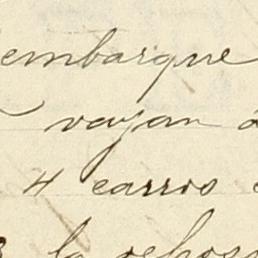 embarque
vayan
4 carros
la